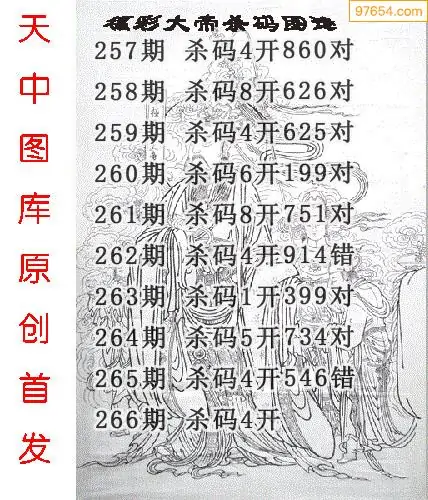 97654.com
福彩大帝杀码图迷
257期 杀码4开860对
258期 杀码8开626对
259期 杀码4开625对
260期 杀码6开199对
261期 杀码8开751对
262期 杀码4开914错
263期 杀码1开399对
264期 杀码5开734对
265期 杀码4开546错
266期 杀码4开
天中图库原创首发